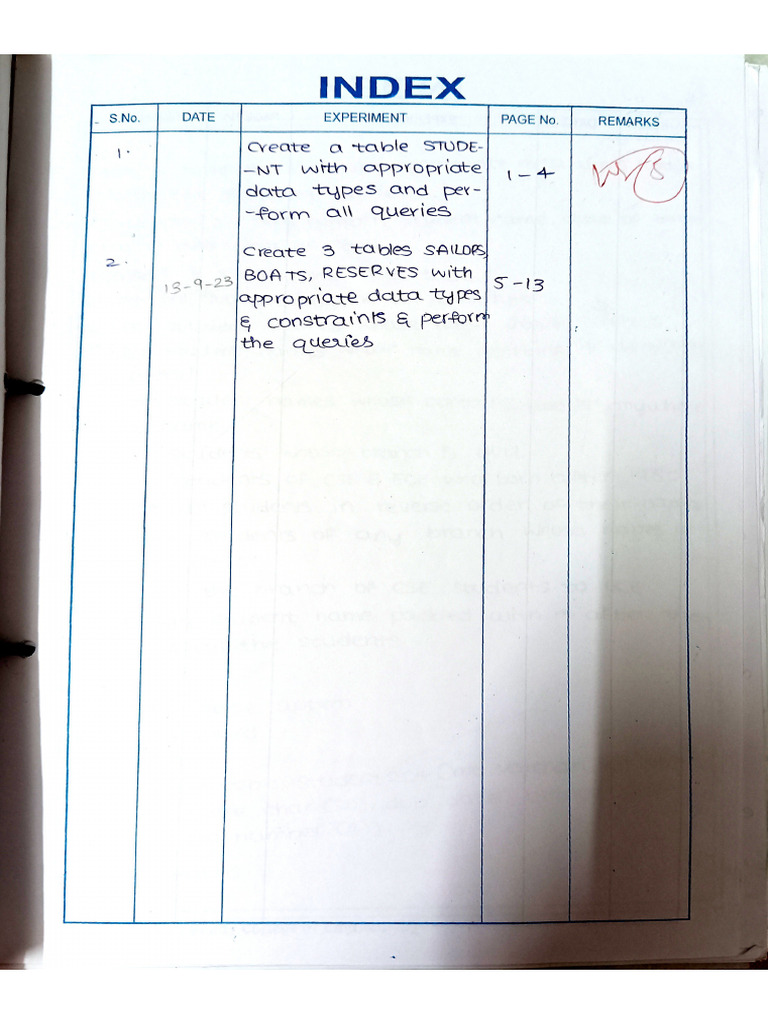 INDEX
S.No. DATE EXPERIMENT PAGE No. REMARKS
1. Create a table STUDE-
-NT with appropriate 1-4
data types and per-
-form all queries
2. Create 3 tables SAILORS,
13-9-23 BOATS, RESERVES with 5-13
appropriate data types
& constraints & perform
the queries